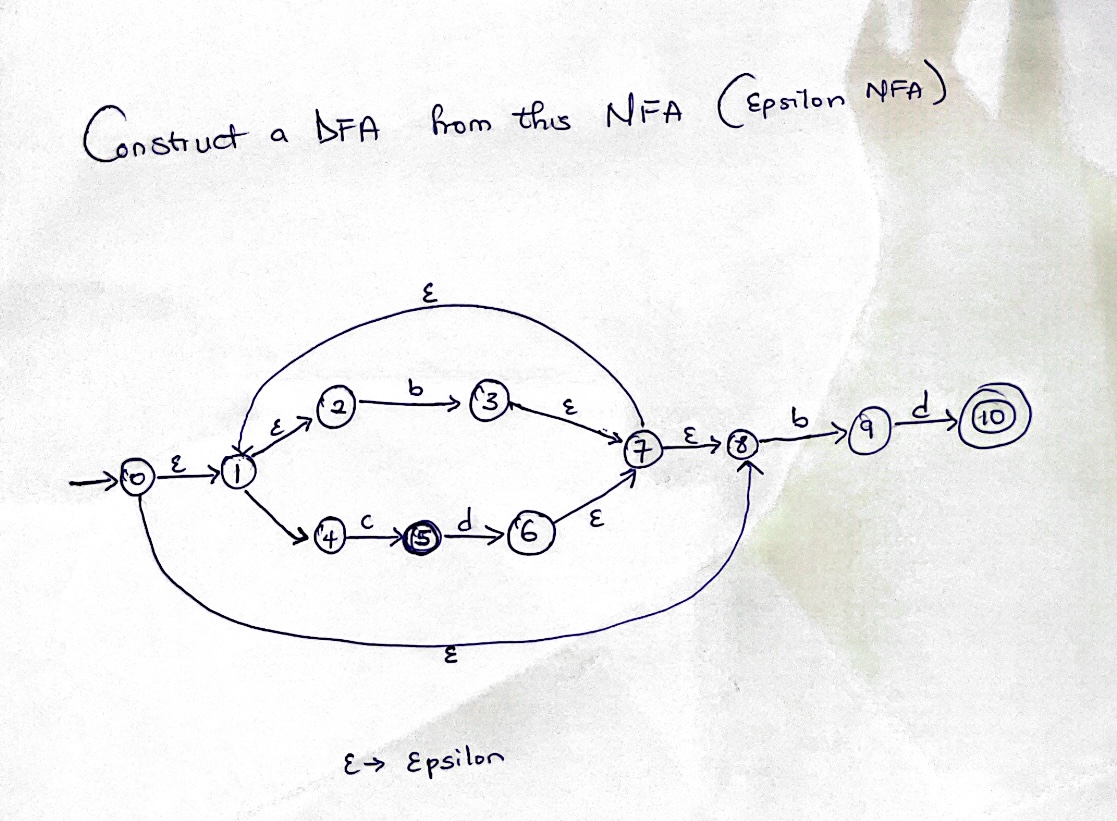 Construct a DFA from this NFA (Epsilon NFA)
ε
2 b 3 ε
ε
0 ε 1
7 ε 8 b 9 d 10
4 c 5 d 6 ε
ε
ε → Epsilon